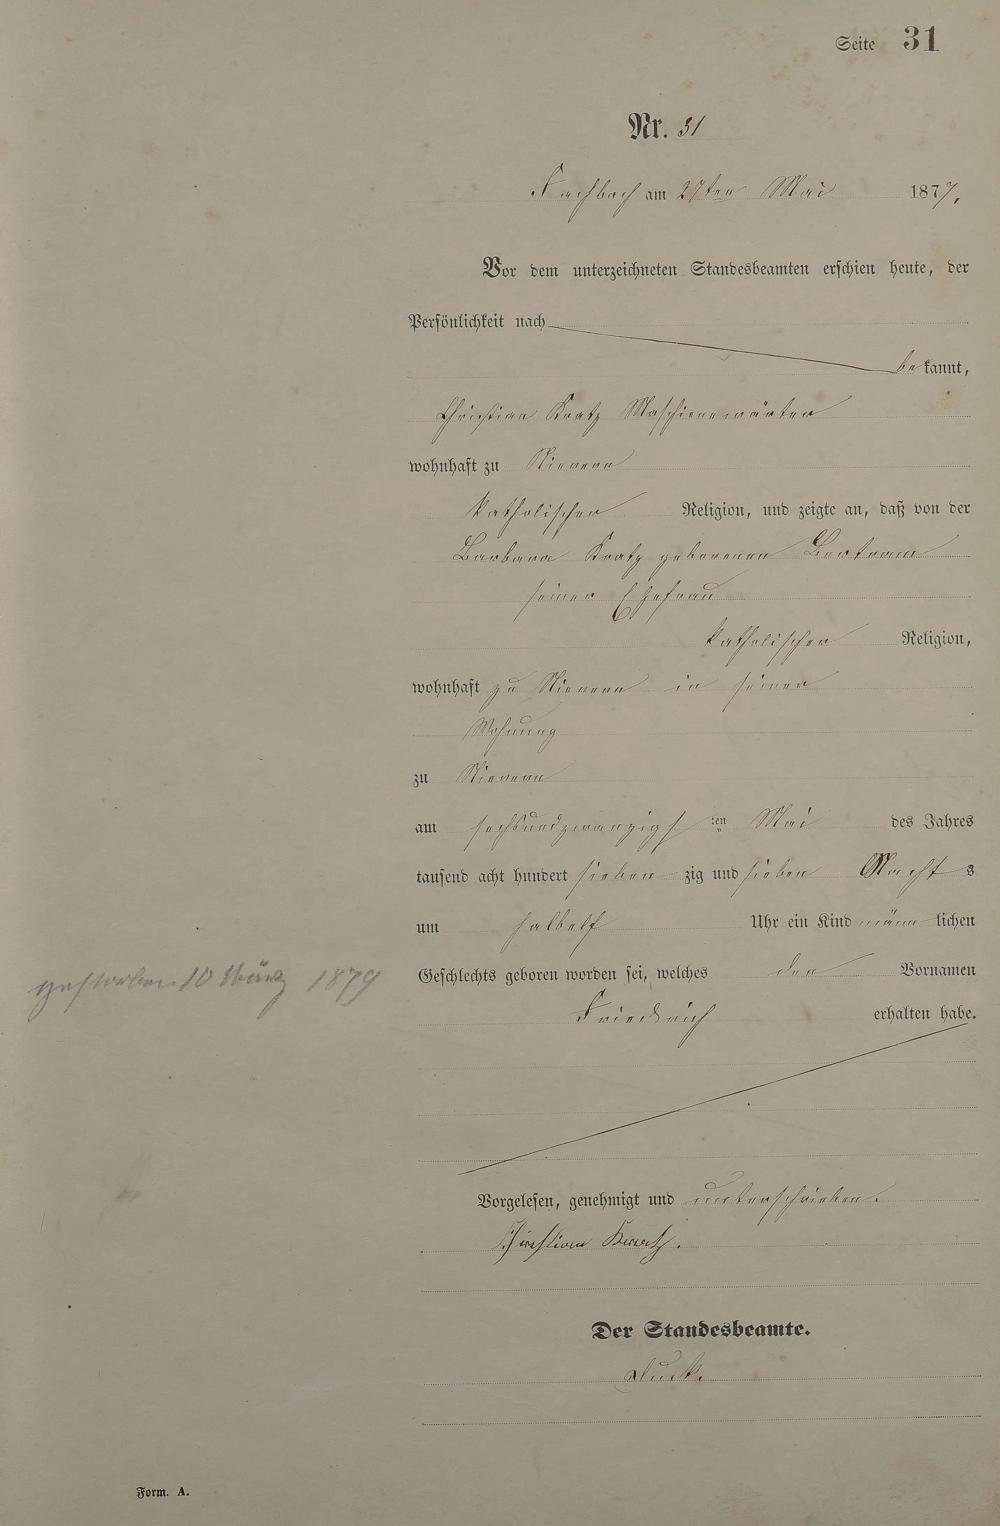 Seite 31
Nr. 31
Fachbach am 27ten Mai 1877.
Vor dem unterzeichneten Standesbeamten erschien heute, der
Persönlichkeit nach
bekannt,
Christian Kratz Maschienenwärter
wohnhaft zu Nievern
katholischer Religion, und zeigte an, daß von der
Barbara Kratz geborenen Bertram
seiner Ehefrau
katholischer Religion,
wohnhaft zu Nievern in seiner
Wohnung
zu Nievern
am sechsundzwanzigsten Mai des Jahres
tausend acht hundert siebenzig und sieben Nachts
um halbelf Uhr ein Kind männlichen
gestorben 10 März 1879
Geschlechts geboren worden sei, welches den Vornamen
Friedrich erhalten habe.
Vorgelesen, genehmigt und unterschrieben.
Christian Kratz.
Der Standesbeamte.
Form. A.